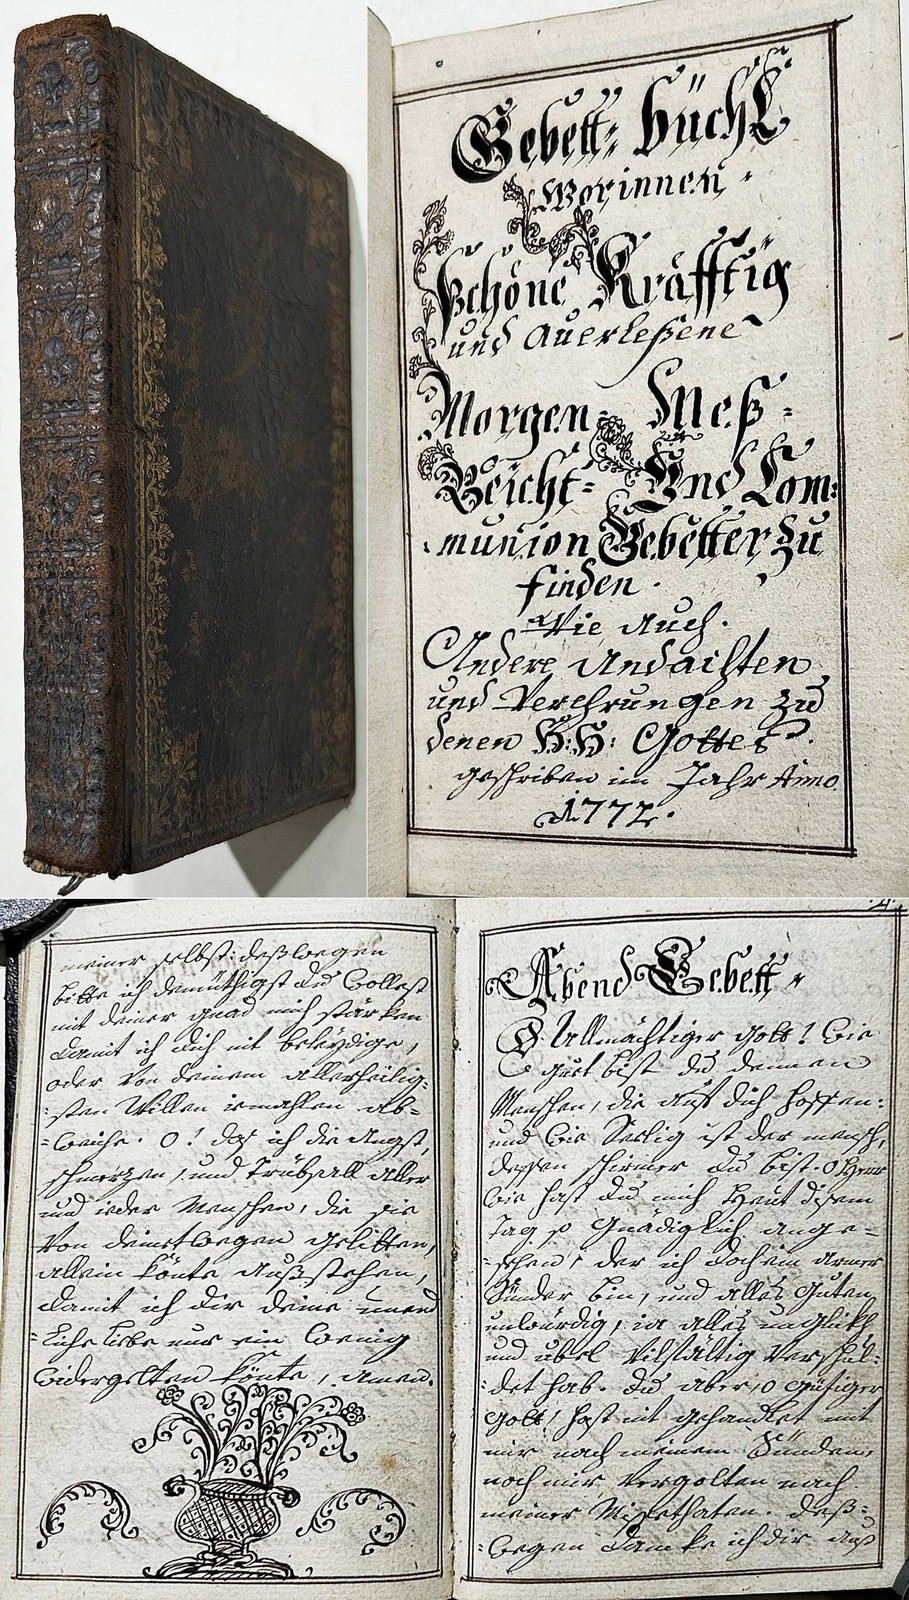 Gebett: büchl
Worinnen
Schöne Kräfftig
und Auerleßene
Morgen: Meß:
Beicht: Und Com:
munion Gebetter zu
finden.
Wie Auch.
Andere Andachten
und Verehrungen zu
denen H: H: Gottes.
geschriben im Jahr Anno
1772.
meiner selbst: deßwegen
bitte ich demüthigst du wollest
mit deiner gnad mich stärken
damit ich dich nit beleydige,
oder von deinem allerheilig:
:sten Willen iemahlen ab=
=weiche. O! daß ich die Angst,
schmerzen, und Trübsall aller
und ieder Menschen, die sie
von deinetwegen gelitten,
allein könte außstehen,
damit ich dir deine unend
=liche liebe nur ein wenig
widergelten könte, amen.
4.
Abend Gebett
O Allmächtiger Gott! wie
gutt bist du dennen
Menschen, die auf dich hoffen:
und wie Seelig ist der mensch,
dessen schirmer du bist. O Herr
wie hast du mich heut disem
Tag so Gnädiglich ange=
=sehen, der ich doch ein armer
Sünder bin, und alles guten
unwürdig, ia alles unglükh
und übel vilfältig verschul:
:det hab. du aber, o gütiger
Gott, hast nit gehandlet mit
mir nach meinem Sünden,
noch mir vergolten nach
meiner Missethaten. deß=
:wegen danke ich dir auß